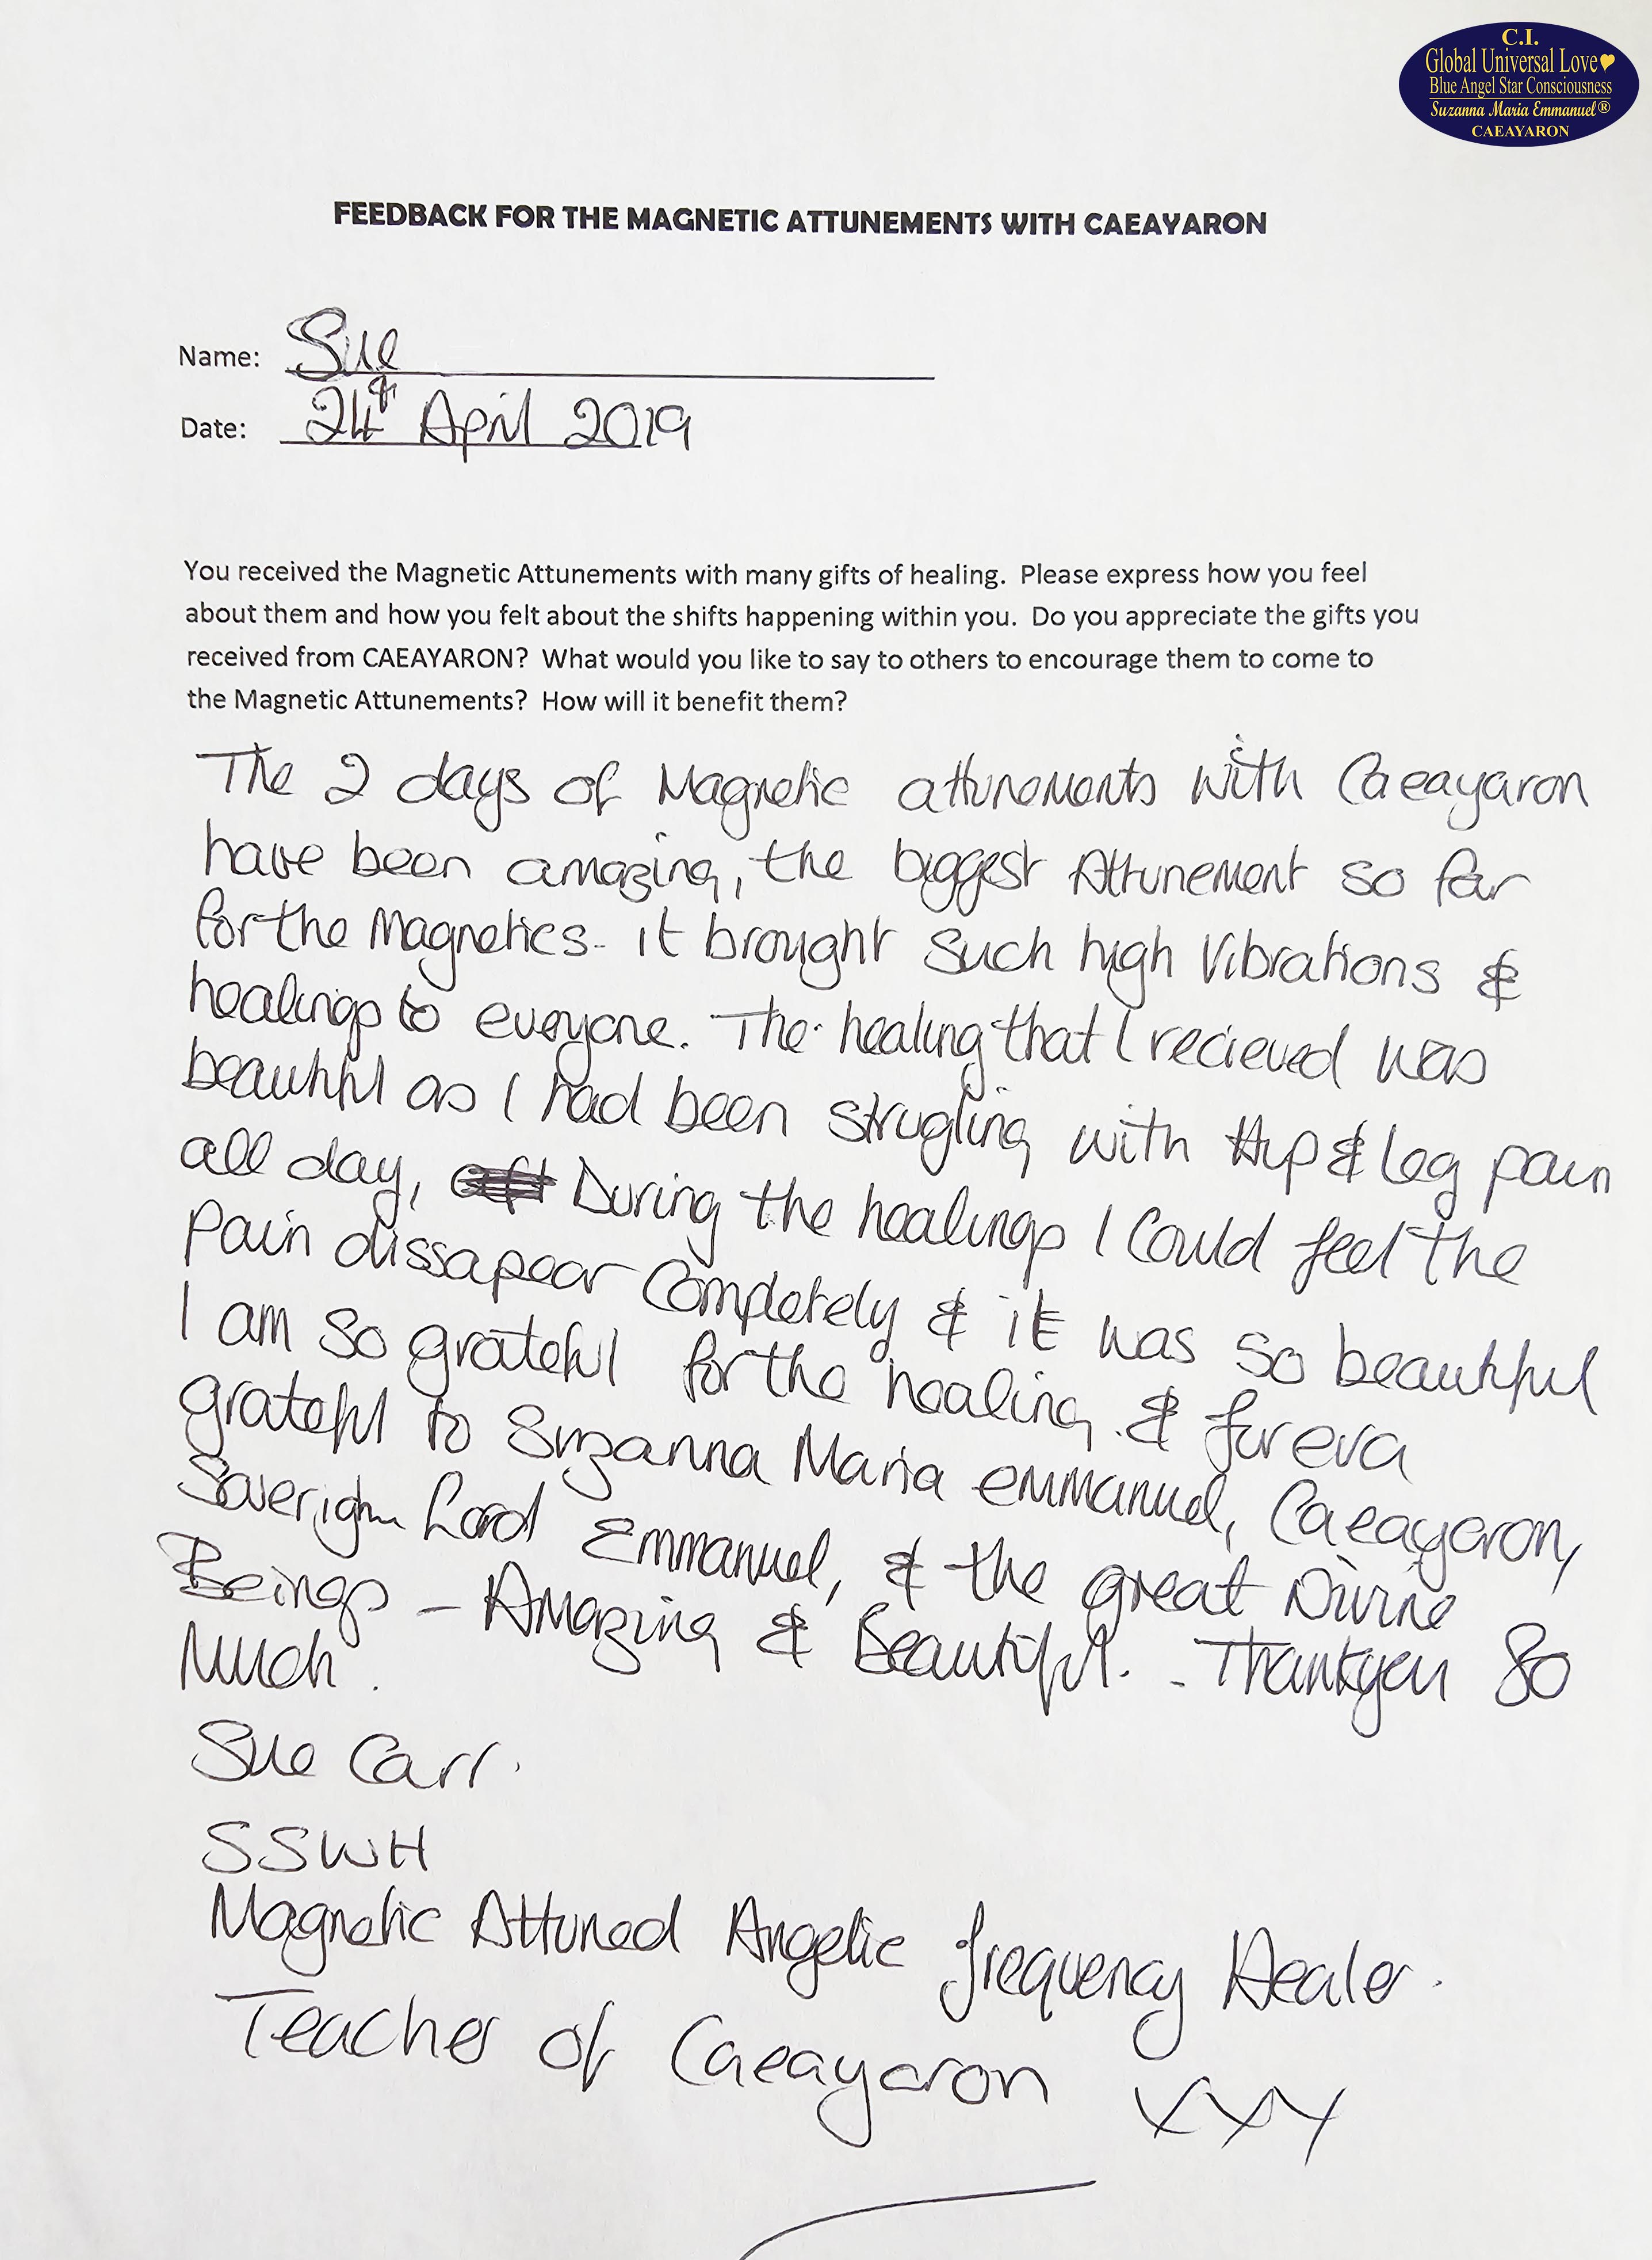 C.I.
Global Universal Love
Blue Angel Star Consciousness
Suzanna Maria Emmanuel®
CAEAYARON
FEEDBACK FOR THE MAGNETIC ATTUNEMENTS WITH CAEAYARON
Name: Sue
Date: 24th April 2019
You received the Magnetic Attunements with many gifts of healing. Please express how you feel
about them and how you felt about the shifts happening within you. Do you appreciate the gifts you
received from CAEAYARON? What would you like to say to others to encourage them to come to
the Magnetic Attunements? How will it benefit them?
The 2 days of Magnetic attunements with Caeayaron
have been amazing, the biggest Attunement so far
for the Magnetics - it brought such high Vibrations &
healings to everyone. The healing that I recieved was
beautiful as I had been strugling with Hip & Leg pain
all day, During the healings I Could feel the
Pain dissapear Completely & it was so beautiful
I am so grateful for the healing. & for eva
grateful to Suzanna Maria emmanuel, Caeayaron,
Soverighn Lord Emmanuel, & the great Divine
Beings - Amazing & Beautiful. - Thankyou So
Much.
Sue Carr.
SSWH
Magnetic Attuned Angelic frequency Healer.
Teacher of Caeayaron xxx